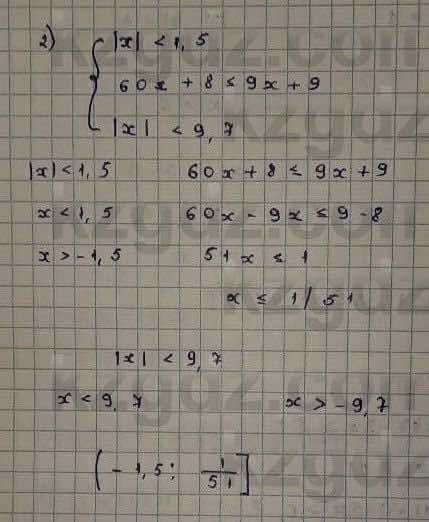 2) { |x| < 1,5
60x + 8 ≤ 9x + 9
|x| < 9,7
|x| < 1,5
60x + 8 ≤ 9x + 9
x < 1,5
60x - 9x ≤ 9 - 8
x > -1,5
51x ≤ 1
x ≤ 1/51
|x| < 9,7
x < 9,7
x > -9,7
(-1,5; 1/51]